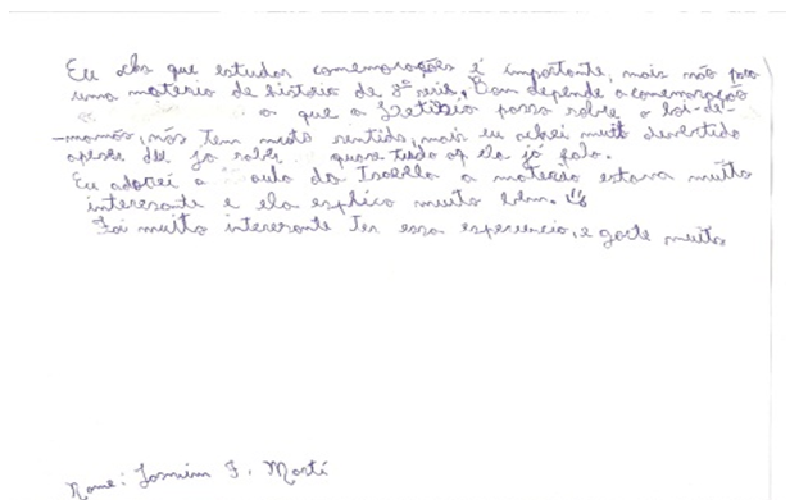 Eu acho que estudar comemorações é importante, mais não pra
uma materia de história de 8º série, Bom depende a comemoração
o que a Letitzia passo sobre o boi-de-
-mamão, não tem muito sentido, mais eu achei muito devertido
apesar de ja saber quase tudo oq ela já falo.
Eu adorei a aula da Isabella a materia estava muito
interesante e ela esplico muito bem.
Foi muito interesante ter essa esperiencia, e goste muito
Nome: F. Martí